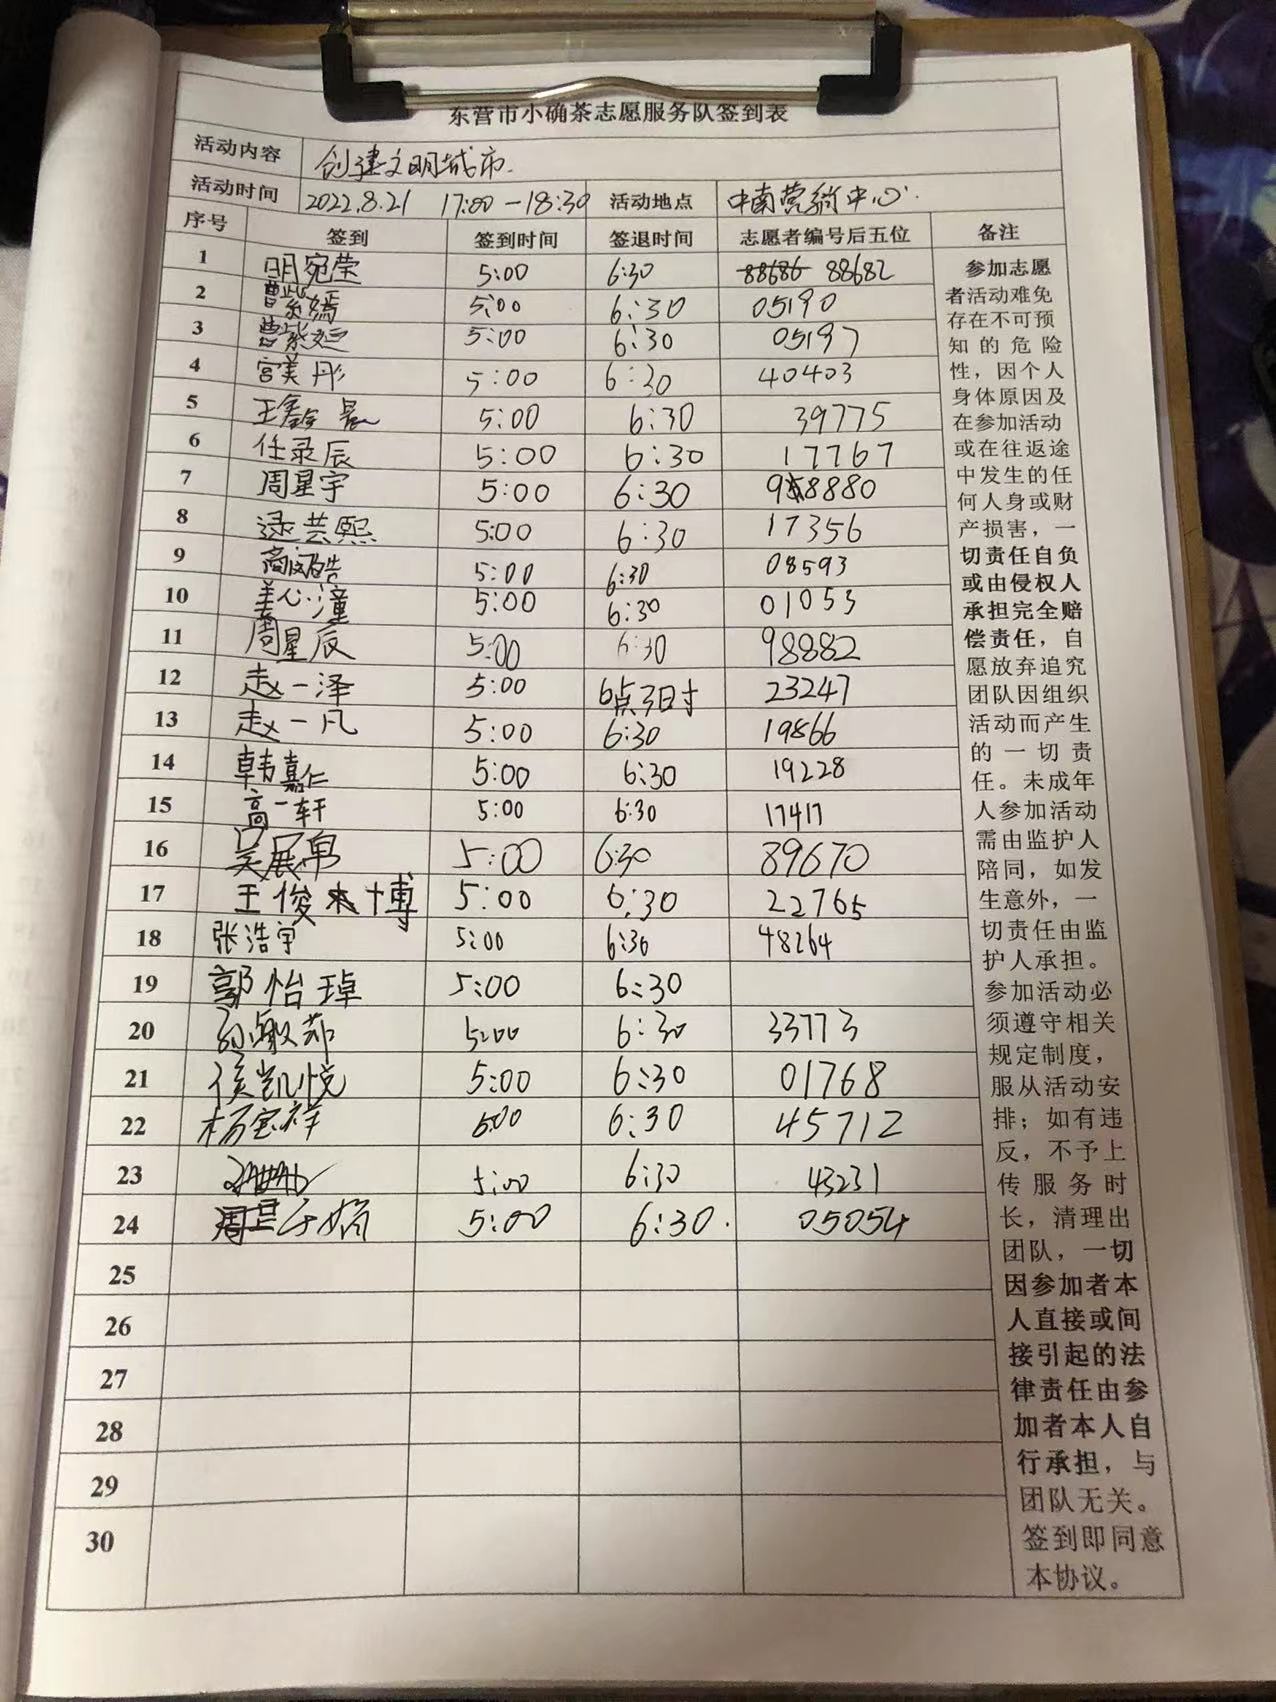 东营市小确茶志愿服务队签到表
活动内容 创建文明城市.
活动时间 2022.8.21 17:00-18:30 活动地点 中南营销中心.
序号 签到 签到时间 签退时间 志愿者编号后五位 备注
1 明宛莹 5:00 6:30 88686 88682
2 曹紫嫣 5:00 6:30 05190
3 曹紫 5:00 6:30 05197
4 宫美彤 5:00 6:30 40403
5 王鑫 5:00 6:30 39775
6 任录辰 5:00 6:30 17767
7 周星宇 5:00 6:30 98880
8 逯芸熙 5:00 6:30 17356
9 高 皓 5:00 6:30 08593
10 姜心潼 5:00 6:30 01053
11 周星辰 5:00 6:30 98882
12 赵一泽 5:00 6:点30 23247
13 赵一凡 5:00 6:30 19866
14 韩嘉仁 5:00 6:30 19228
15 高一轩 5:00 6:30 17417
16 吴展帛 5:00 6:30 89670
17 王俊博 5:00 6:30 22765
18 张浩宇 5:00 6:30 48264
19 郭怡琸 5:00 6:30
20 5:00 6:30 33773
21 侯凯悦 5:00 6:30 01768
22 杨宝祥 5:00 6:30 45712
23 5:00 6:30 43231
24 周星 5:00 6:30. 05054
25
26
27
28
29
30
参加志愿
者活动难免
存在不可预
知的危险
性，因个人
身体原因及
在参加活动
或在往返途
中发生的任
何人身或财
产损害，一
切责任自负
或由侵权人
承担完全赔
偿责任，自
愿放弃追究
团队因组织
活动而产生
的一切责
任。未成年
人参加活动
需由监护人
陪同，如发
生意外，一
切责任由监
护人承担。
参加活动必
须遵守相关
规定制度，
服从活动安
排；如有违
反，不予上
传服务时
长，清理出
团队，一切
因参加者本
人直接或间
接引起的法
律责任由参
加者本人自
行承担，与
团队无关。
签到即同意
本协议。